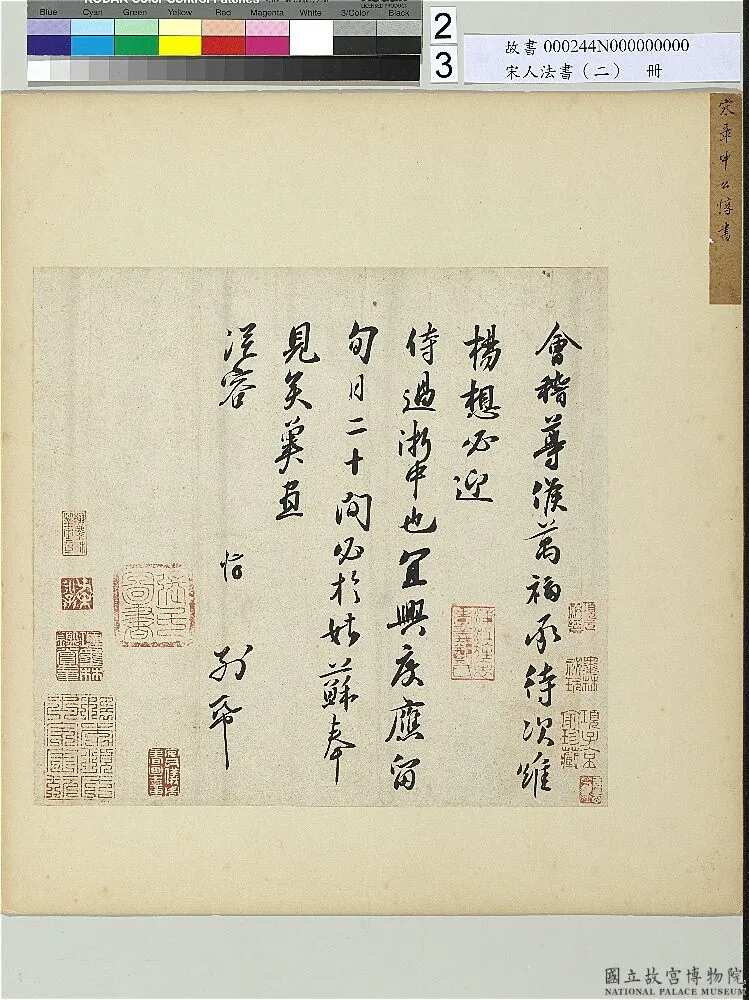 KODAK Color Control Patches
LICENSED PRODUCT
Blue Cyan Green Yellow Red Magenta White 3/Color Black
2
3
故書 000244N000000000
宋人法書（二） 冊
宋章申公惇書
會稽尊候萬福承待次維
楊想必迎
侍過浙中也宜興度應留
旬日二十間必於姑蘇奉
見矣冀宜
從容 惇 別幅
項子京
家珍藏
圖書
國立故宮博物院
NATIONAL PALACE MUSEUM